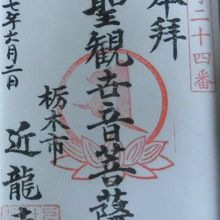 二十四番
奉拝
聖観世音菩薩
栃木市
近龍
七年六月二日